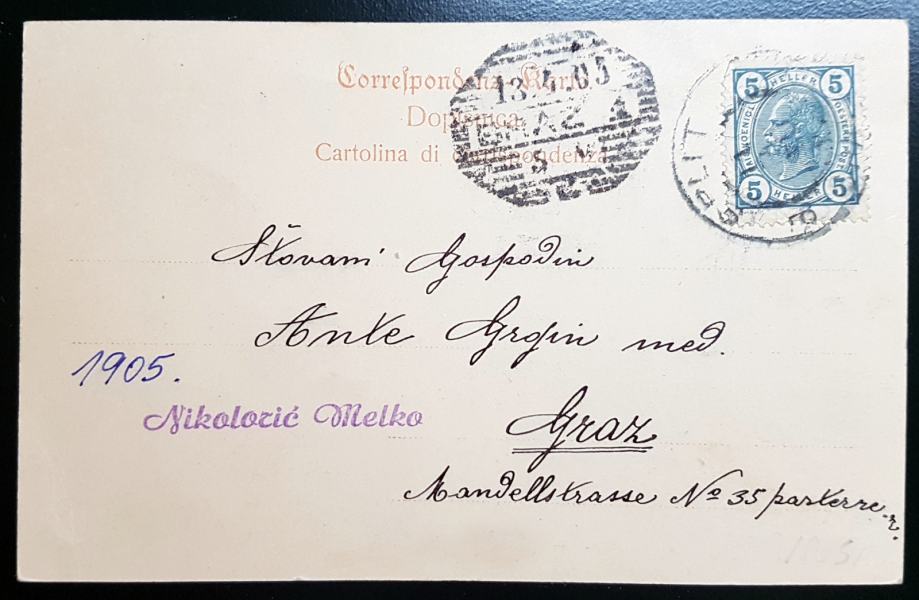 Correspondenz-Karte
Dopisnica
Cartolina di corrispondenza
13.4.05
GRAZ 1
SPLIT
5 HELLER 5
5 HELLER 5
Štovani Gospodin
Ante Grgin med.
1905.
Nikolorić Melko
Graz
Mandellstrasse No 35 parterre r.